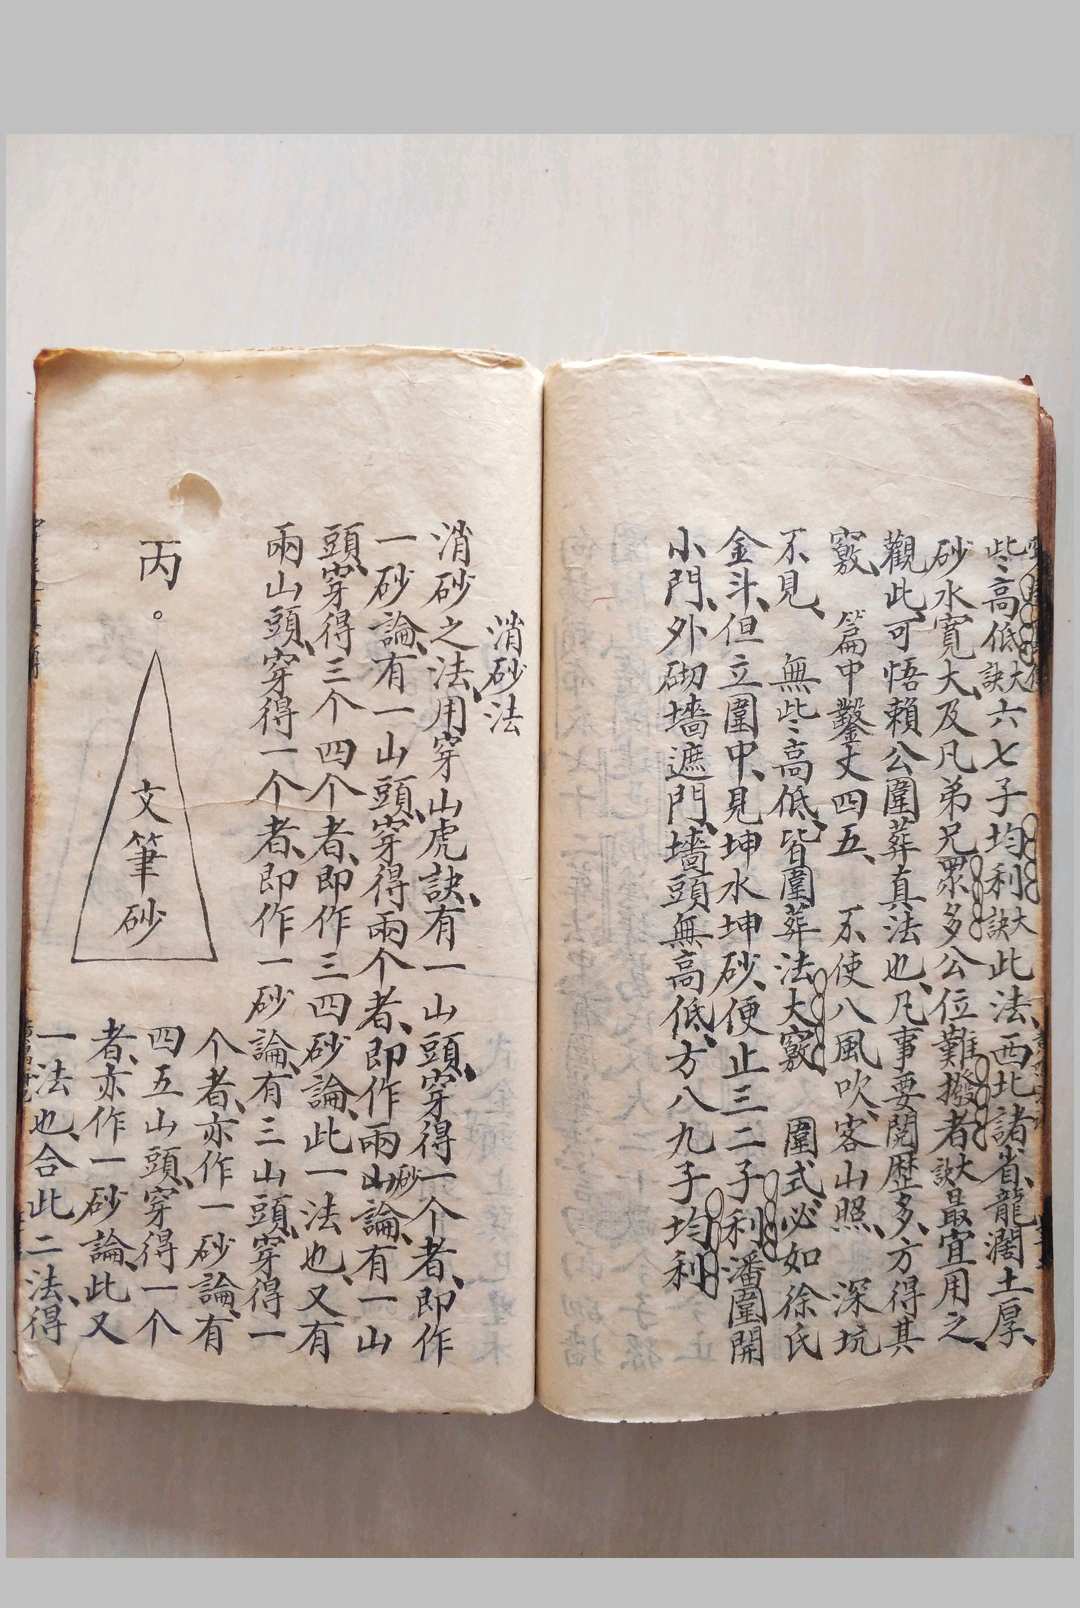 些々高低大訣六七子均利大訣此法西北諸省龍濶土厚
砂水寬大及凡弟兄眾多公位難撥者大訣最宜用之
觀此可悟賴公圍葬真法也凡事要閱歷多方得其
竅 篇中鑿丈四五 不使八風吹客山照 深坑
不見 無些々高低皆圍葬法大竅 圍式必如徐氏
金斗但立圍中見坤水坤砂便止三二子利潘圍開
小門外砌墻遮門墻頭無高低方八九子均利
消砂法
消砂之法用穿山虎訣有一山頭穿得一个者即作
一砂論有一山頭穿得兩个者即作兩砂論有一山
頭穿得三个四个者即作三四砂論此一法也又有
兩山頭穿得一个者即作一砂論有三山頭穿得一
个者亦作一砂論有
四五山頭穿得一个
者亦作一砂論此又
一法也合此二法得
丙
文筆砂